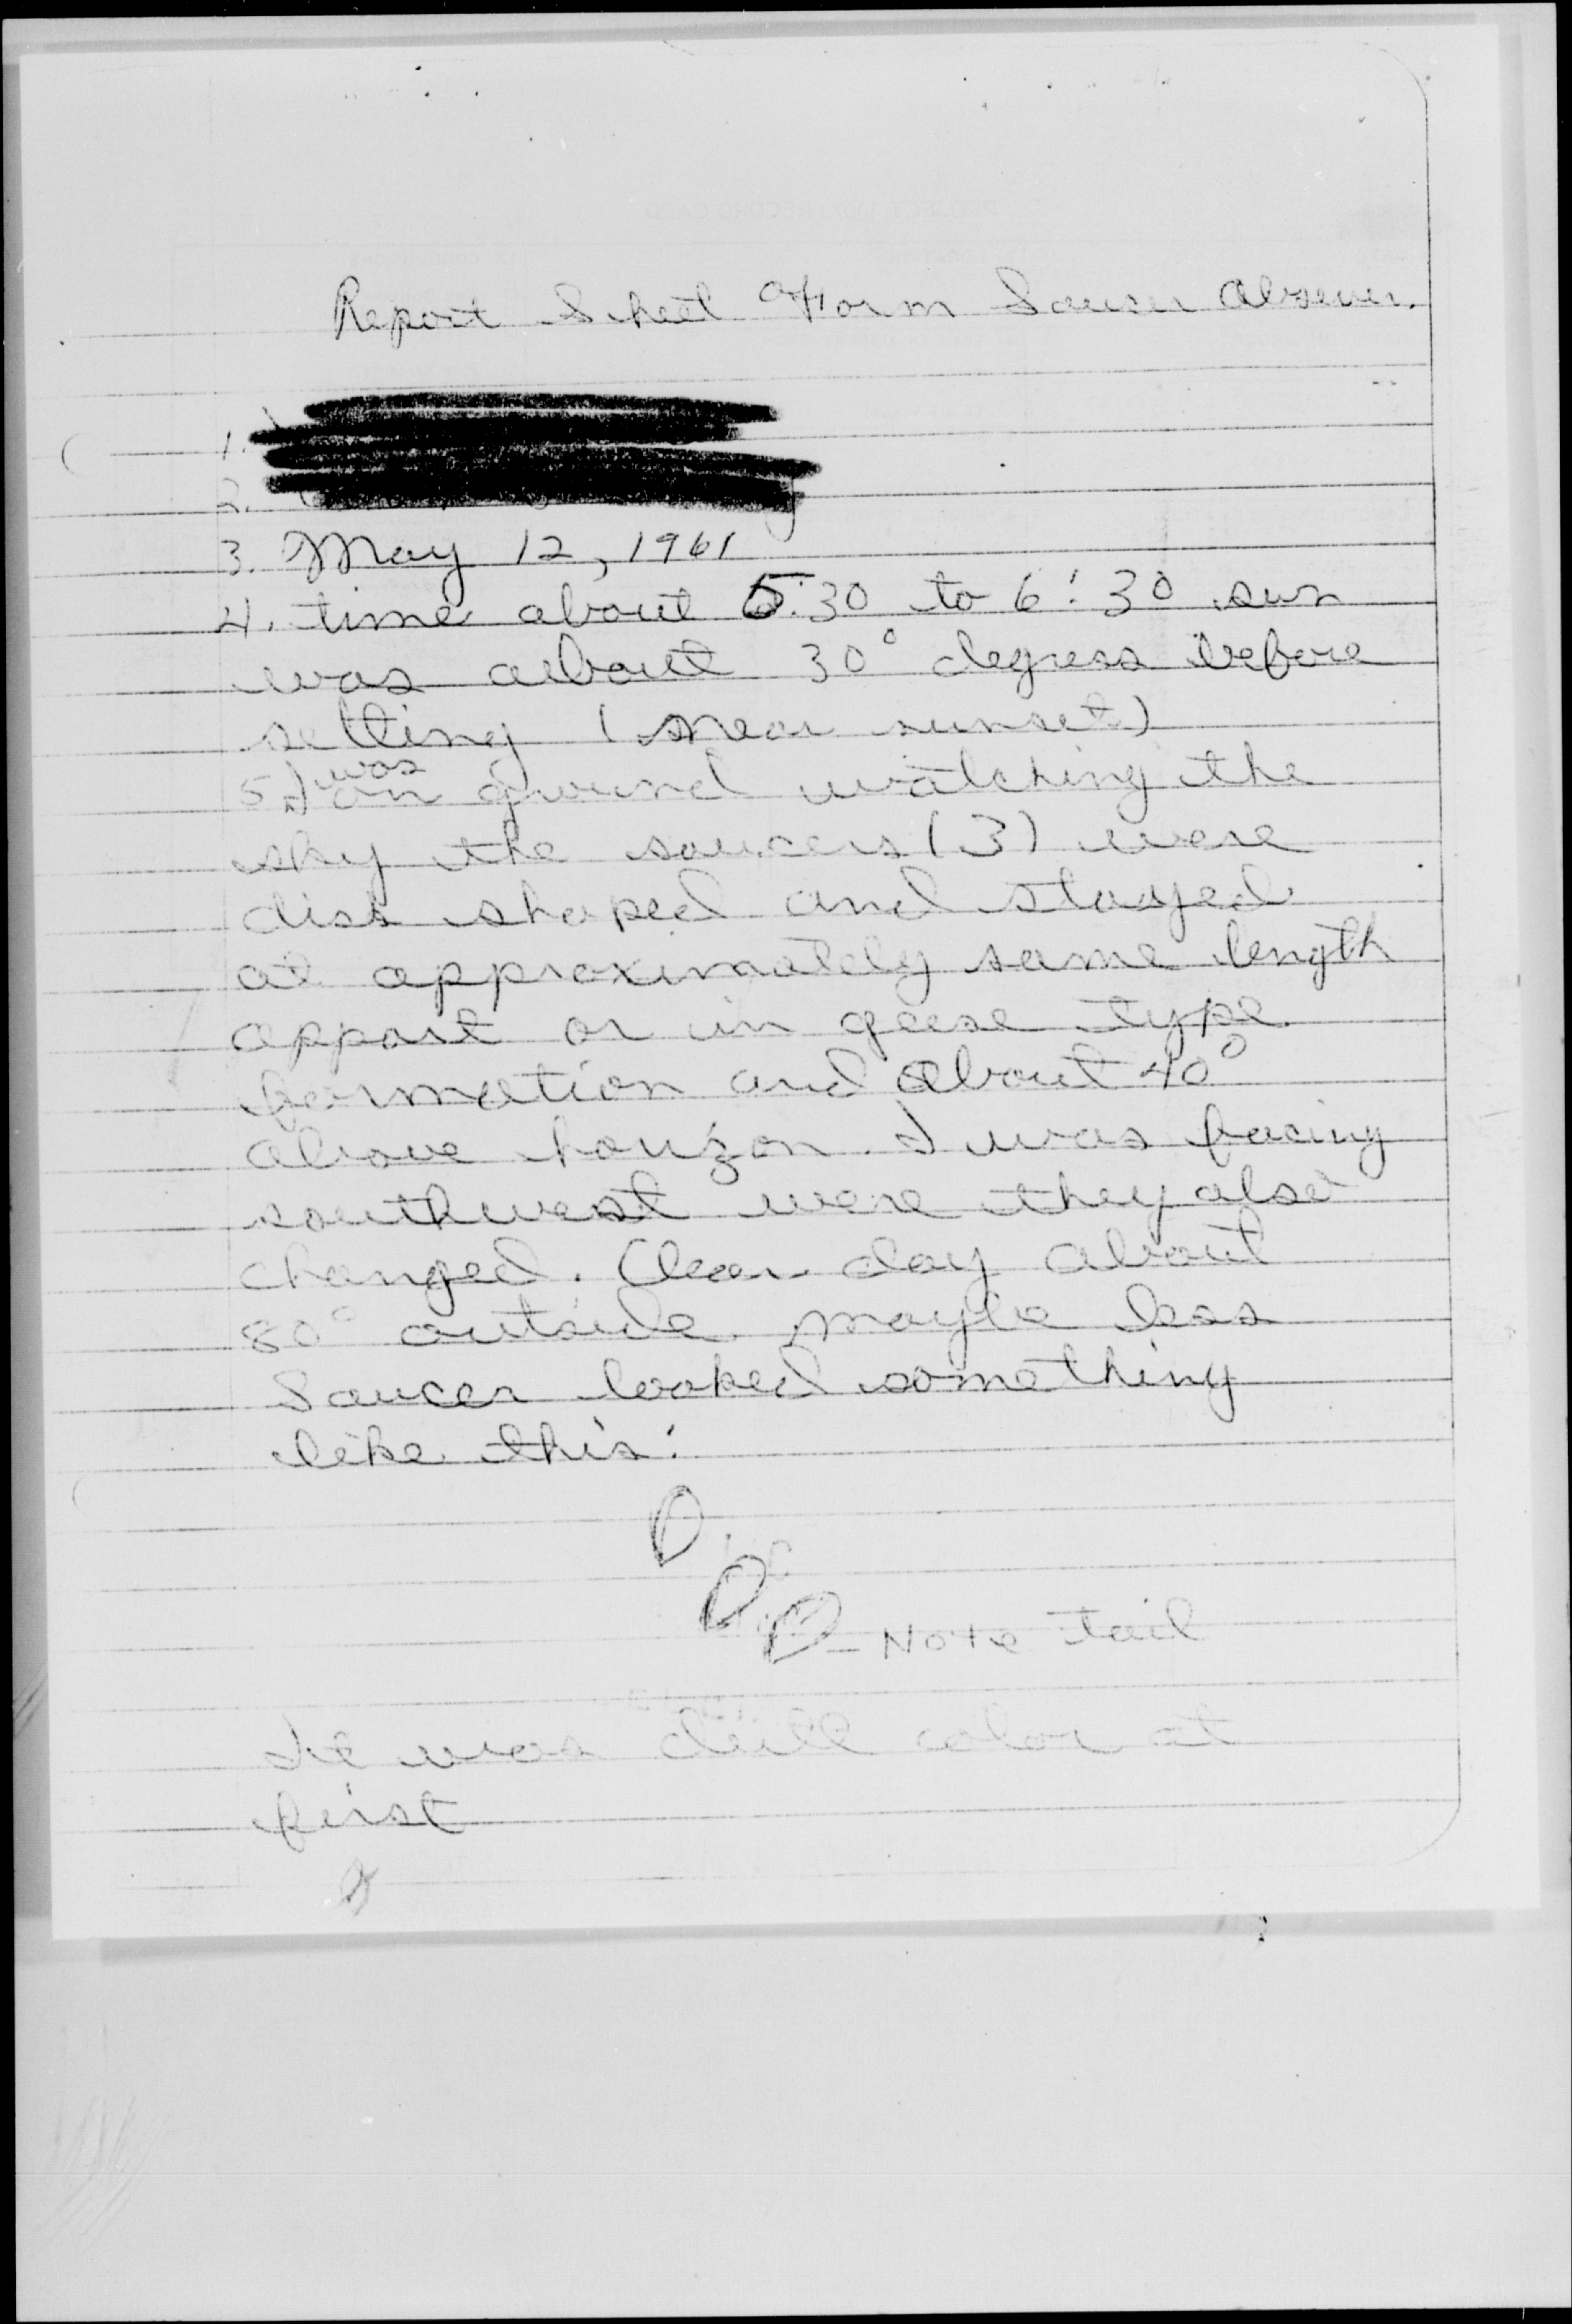 Report Sheet Form Sauser Observer.
1.
2.
3. May 12, 1961
4. time about 5:30 to 6:30 sun
was about 30° degress before
setting (near sunset)
5. I was on ground watching the
sky the saucers (3) were
disk shaped and stayed
at approximately same length
appart or in geese type
formation and about 40°
above horizon. I was facing
southwest were they also
changed. Clear day about
80° outside maybe less
Saucer looked something
like this:
Note tail
It was dull color at
first